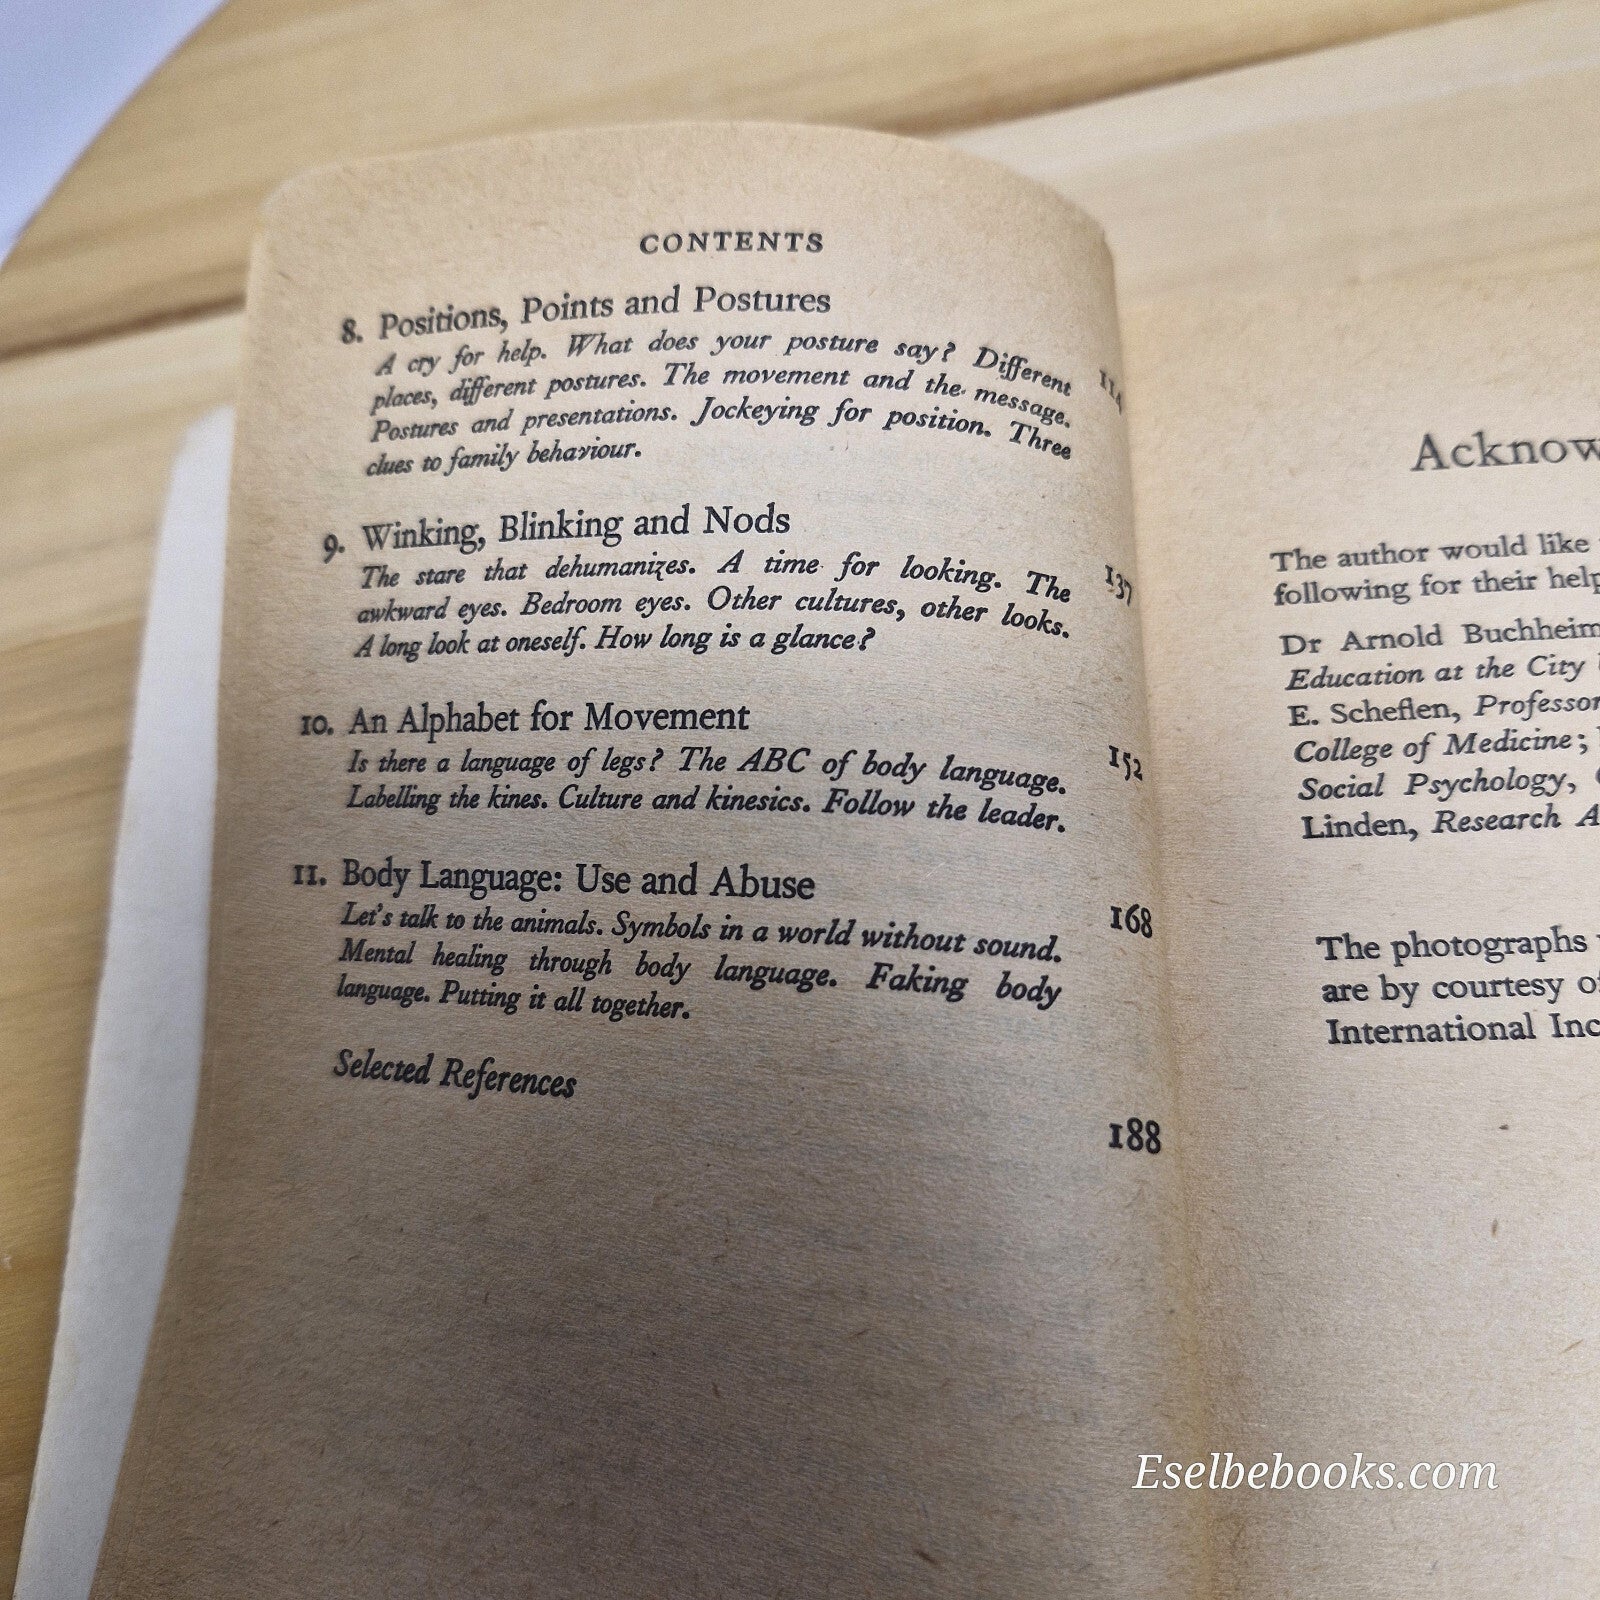 CONTENTS
8. Positions, Points and Postures
A cry for help. What does your posture say? Different
places, different postures. The movement and the message.
Postures and presentations. Jockeying for position. Three
clues to family behaviour.
114
9. Winking, Blinking and Nods
The stare that dehumanizes. A time for looking. The
awkward eyes. Bedroom eyes. Other cultures, other looks.
A long look at oneself. How long is a glance?
137
10. An Alphabet for Movement
Is there a language of legs? The ABC of body language.
Labelling the kines. Culture and kinesics. Follow the leader.
152
11. Body Language: Use and Abuse
Let's talk to the animals. Symbols in a world without sound.
Mental healing through body language. Faking body
language. Putting it all together.
168
Selected References
188
Acknow
The author would like
following for their help
Dr Arnold Buchheim
Education at the City
E. Scheflen, Professor
College of Medicine;
Social Psychology,
Linden, Research A
The photographs
are by courtesy of
International Inc
Eselbebooks.com